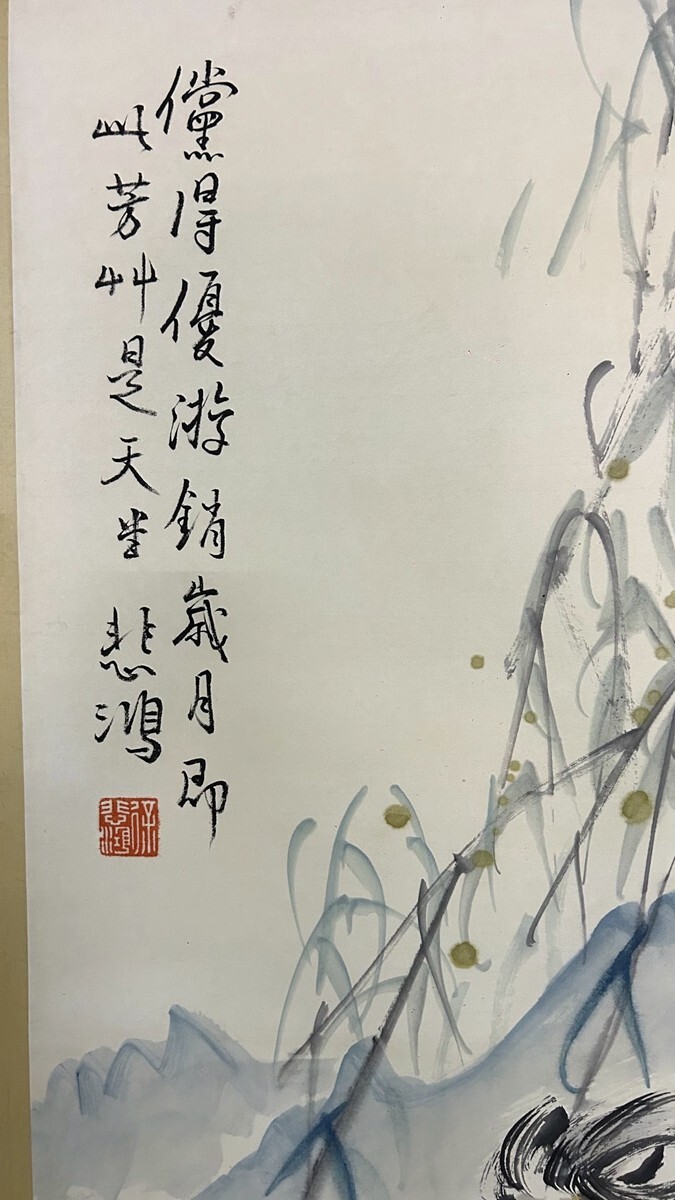 儻得優游銷歲月即
此芳艸是天堂
悲鴻
徐悲鴻